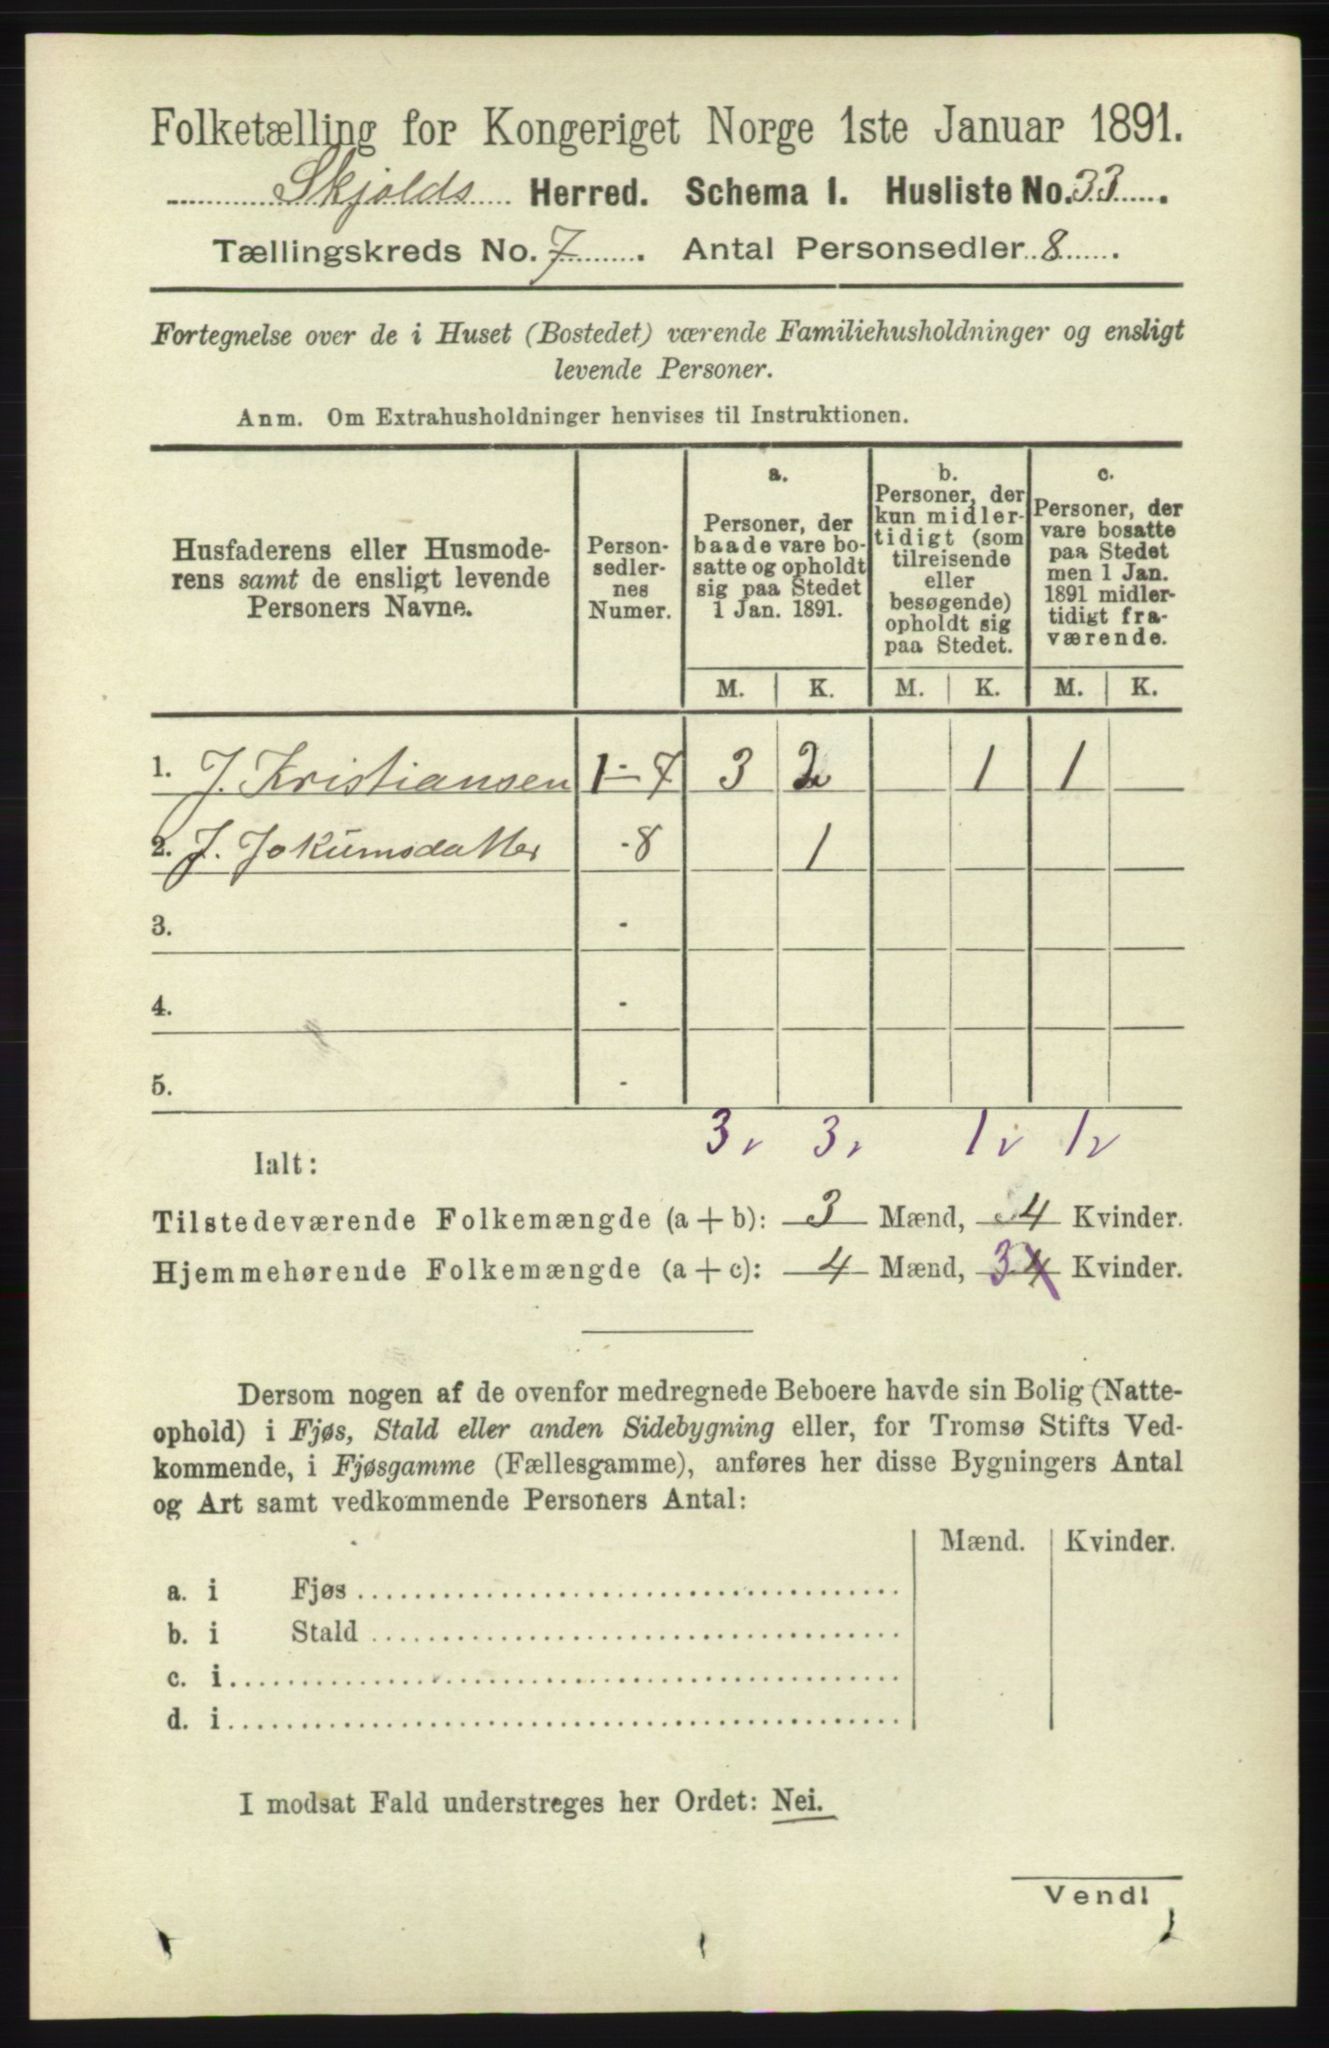 Folketælling for Kongeriget Norge 1ste Januar 1891.
Skjolds Herred. Schema 1. Husliste No. 33.
Tællingskreds No. 7. Antal Personsedler 8.
Fortegnelse over de i Huset (Bostedet) værende Familiehusholdninger og ensligt
levende Personer.
Anm. Om Extrahusholdninger henvises til Instruktionen.
Husfaderens eller Husmode-
rens samt de ensligt levende
Personers Navne.
Person-
sedler-
nes
Numer.
a.
Personer, der
baade vare bo-
satte og opholdt
sig paa Stedet
1 Jan. 1891.
b.
Personer, der
kun midler-
tidigt (som
tilreisende
eller
besøgende)
opholdt sig
paa Stedet.
c.
Personer, der
vare bosatte
paa Stedet
men 1 Jan.
1891 midler-
tidigt fra-
værende.
M. K. M. K. M. K.
1. J. Kristiansen 1-7 3 2 1 1
2. J. Jokumsdatter -8 1
3. -
4. -
5. -
3 3 1 1
Ialt:
Tilstedeværende Folkemængde (a+b): 3 Mænd, 4 Kvinder.
Hjemmehørende Folkemængde (a+c): 4 Mænd, 3 4 Kvinder.
Dersom nogen af de ovenfor medregnede Beboere havde sin Bolig (Natte-
ophold) i Fjøs, Stald eller anden Sidebygning eller, for Tromsø Stifts Ved-
kommende, i Fjøsgamme (Fællesgamme), anføres her disse Bygningers Antal
og Art samt vedkommende Personers Antal:
Mænd. Kvinder.
a. i Fjøs
b. i Stald
c. i
d. i
I modsat Fald understreges her Ordet: Nei.
Vend!